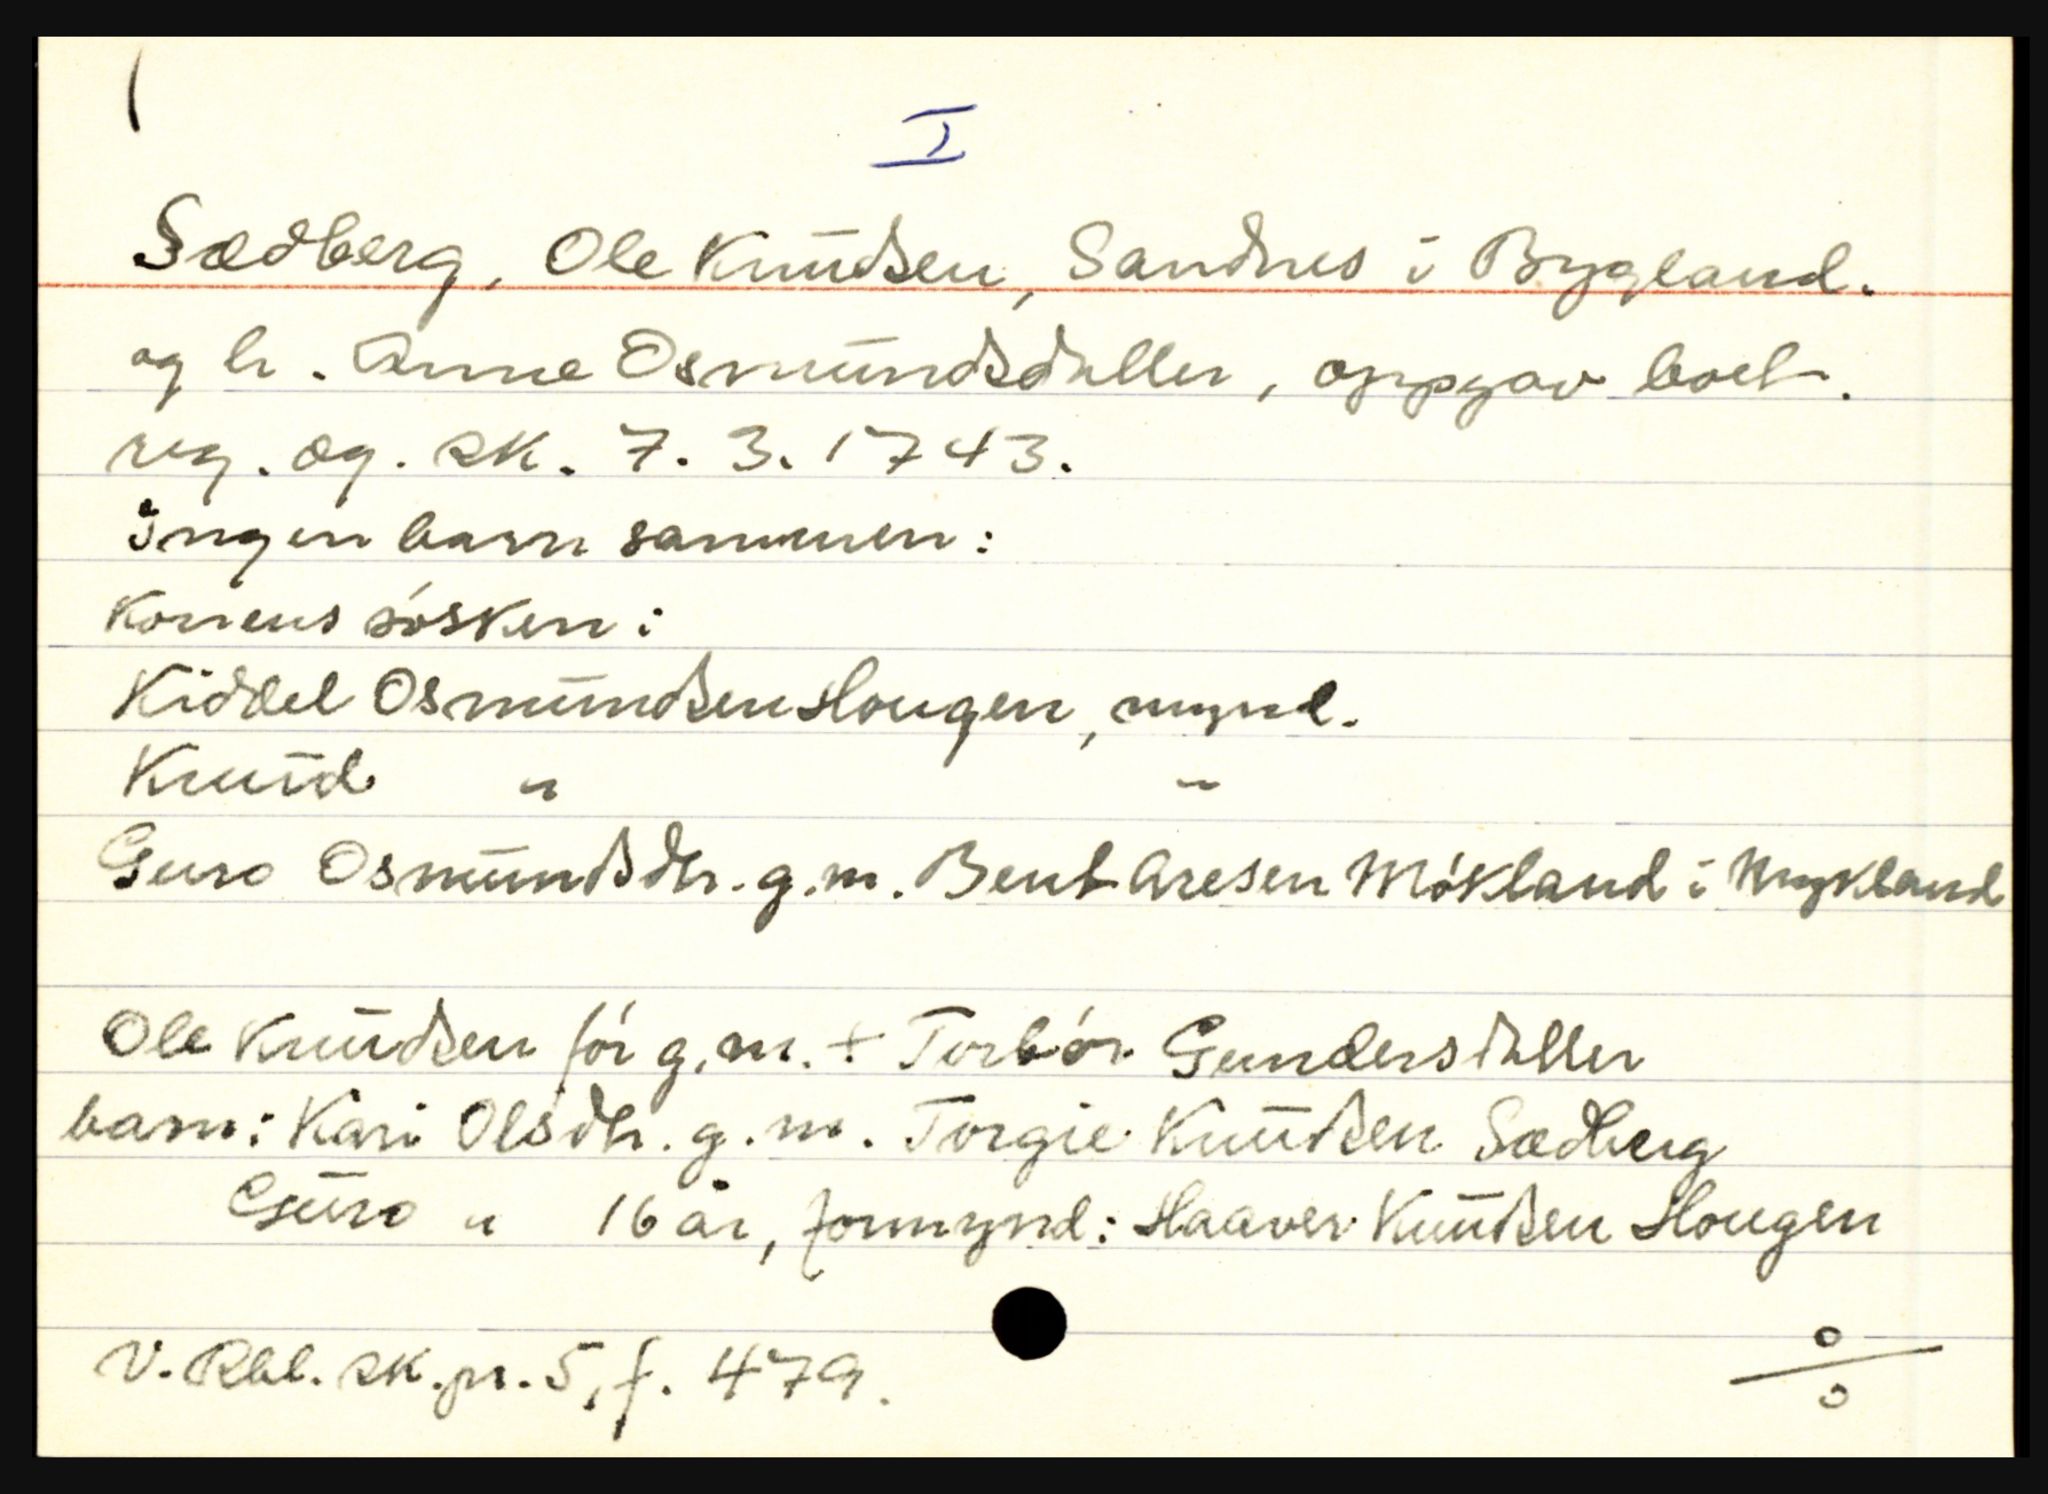 I
Sædberg, Ole Knudsen, Sandnes i Bygland.
og h. Anne Osmundsdatter, oppgav boet.
reg. og. sk. 7. 3. 1743.
Ingen barn sammen:
Konens søsken:
Kiddel Osmundsen Hougen, mynd.
Knud " "
Guro Osmundsdtr. g.m. Bent Aresen Mökland i Mykland
Ole Knudsen för g.m. + Torbör Gundersdatter
barn: Kari Olsdtr. g.m. Torgie Knudsen Sædberg
Guro " 16 år, formynd: Haaver Knudsen Hougen
V. Rbl. sk.pr. 5, f. 479.
o/o